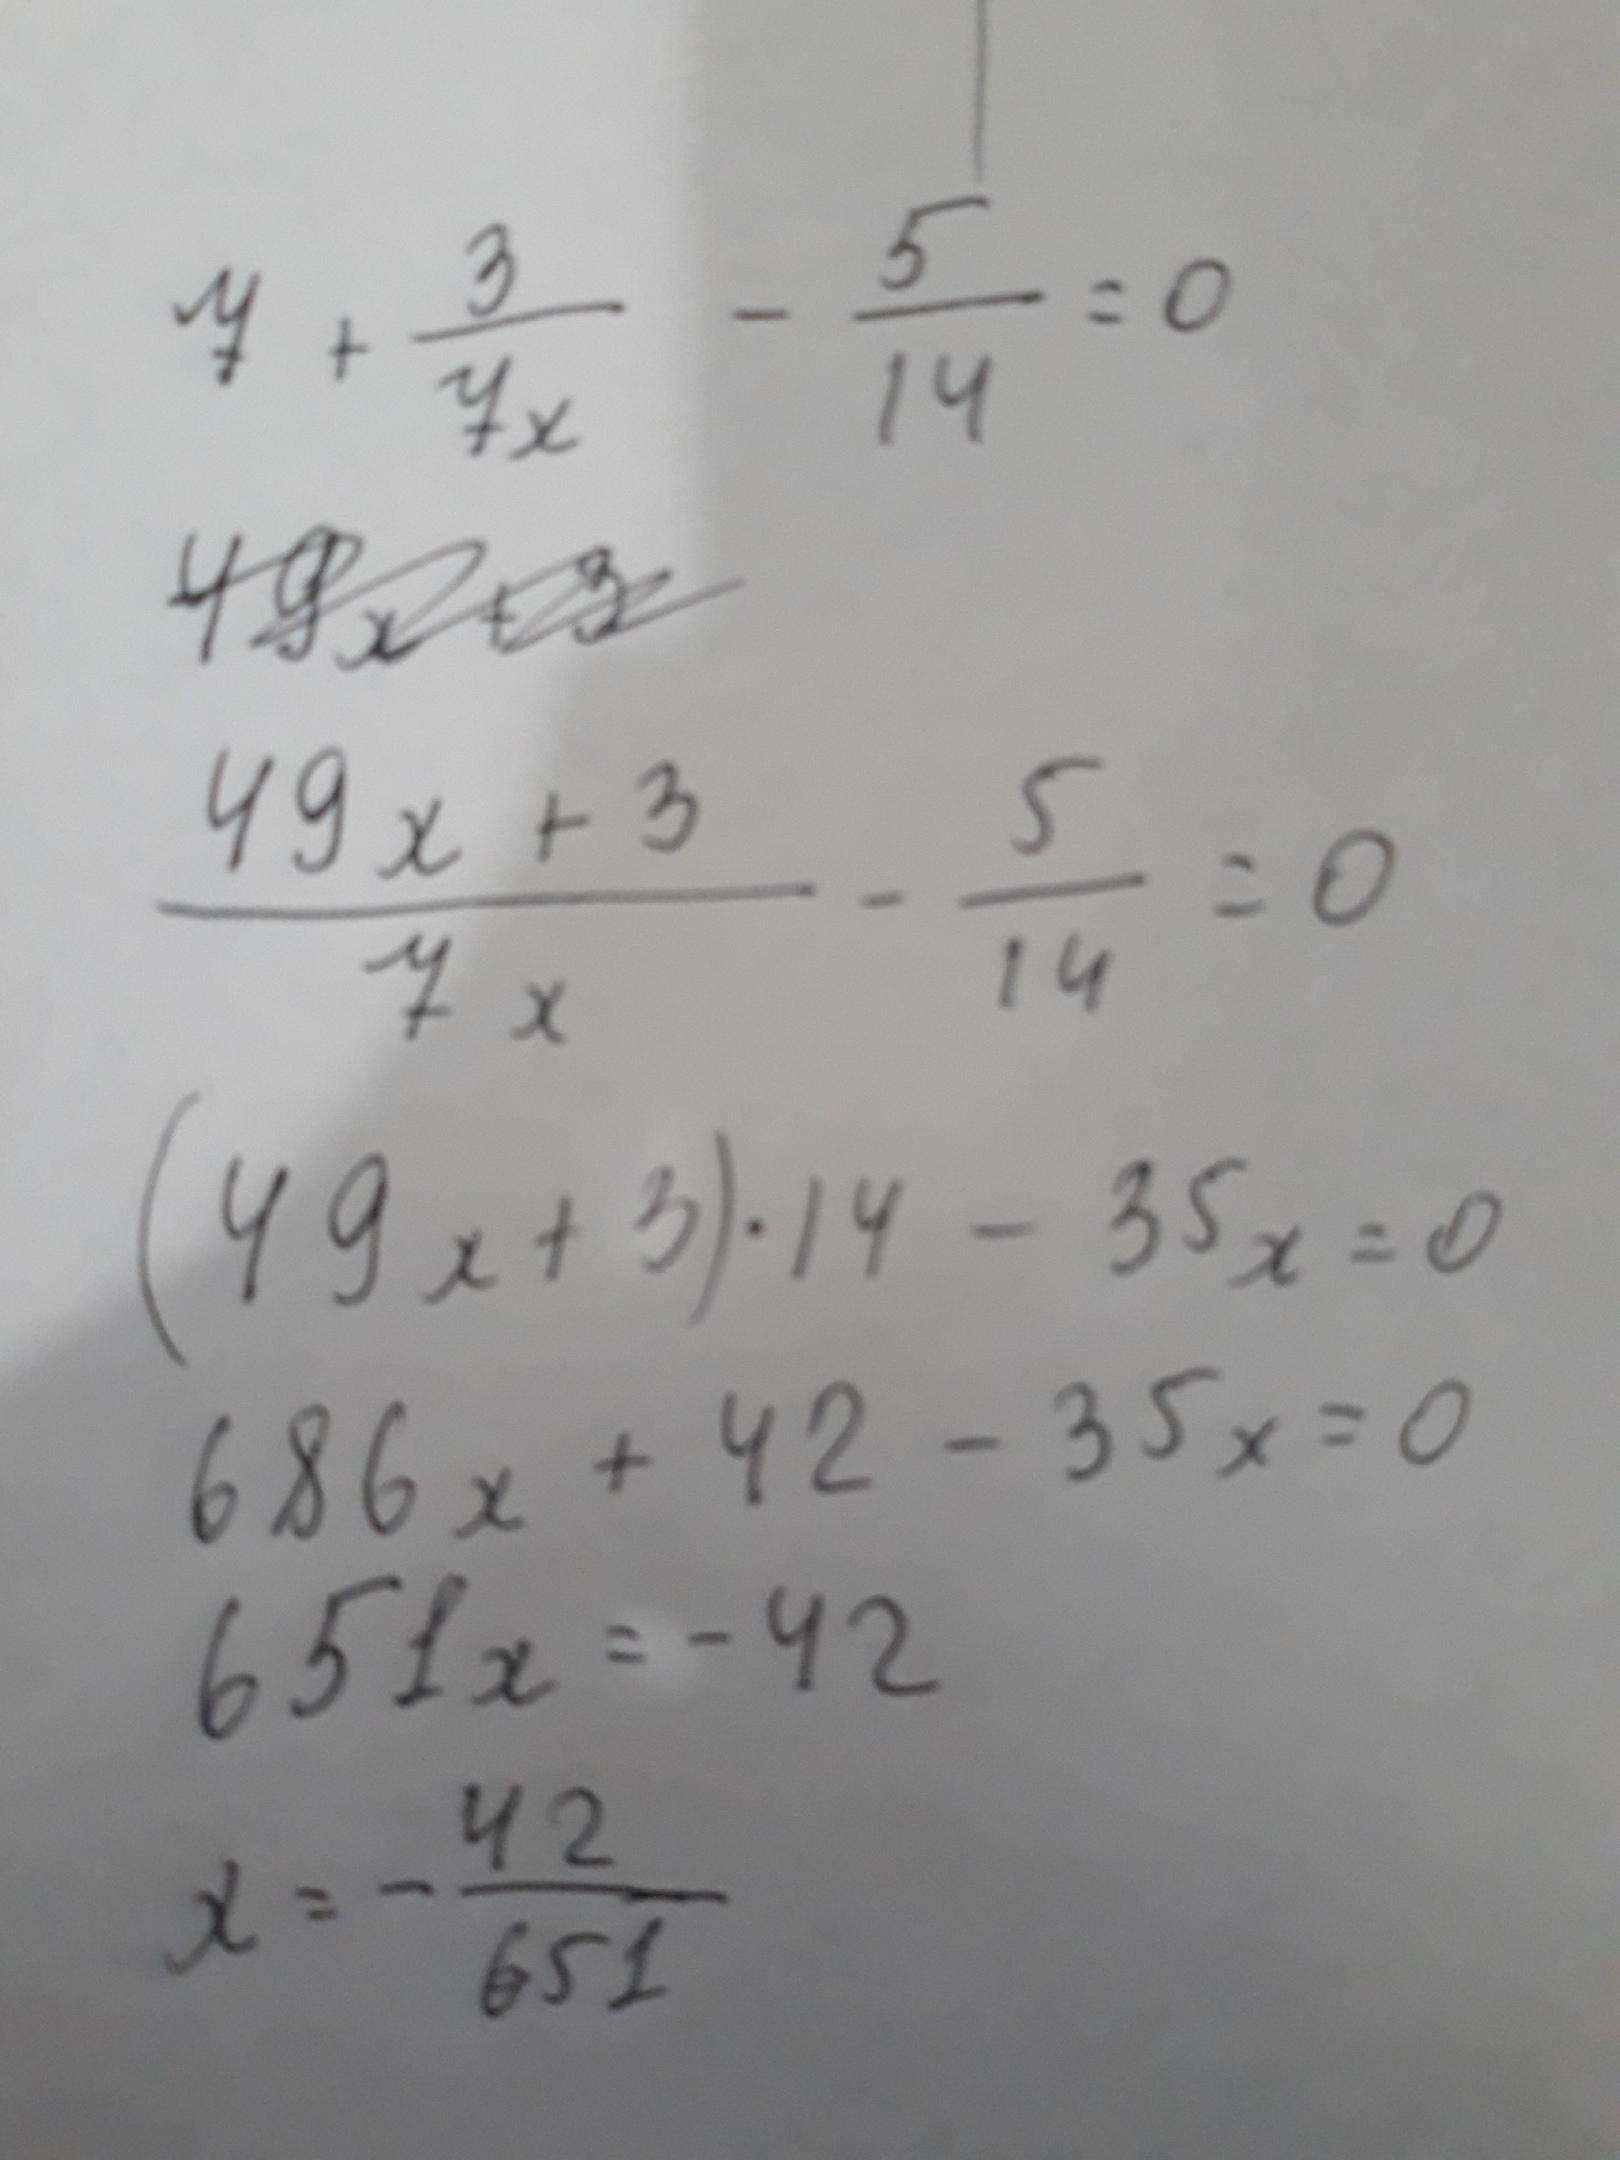 7 + 3/7x - 5/14 = 0
49x + 3
(49x + 3)/7x - 5/14 = 0
(49x + 3) · 14 - 35x = 0
686x + 42 - 35x = 0
651x = -42
x = - 42/651